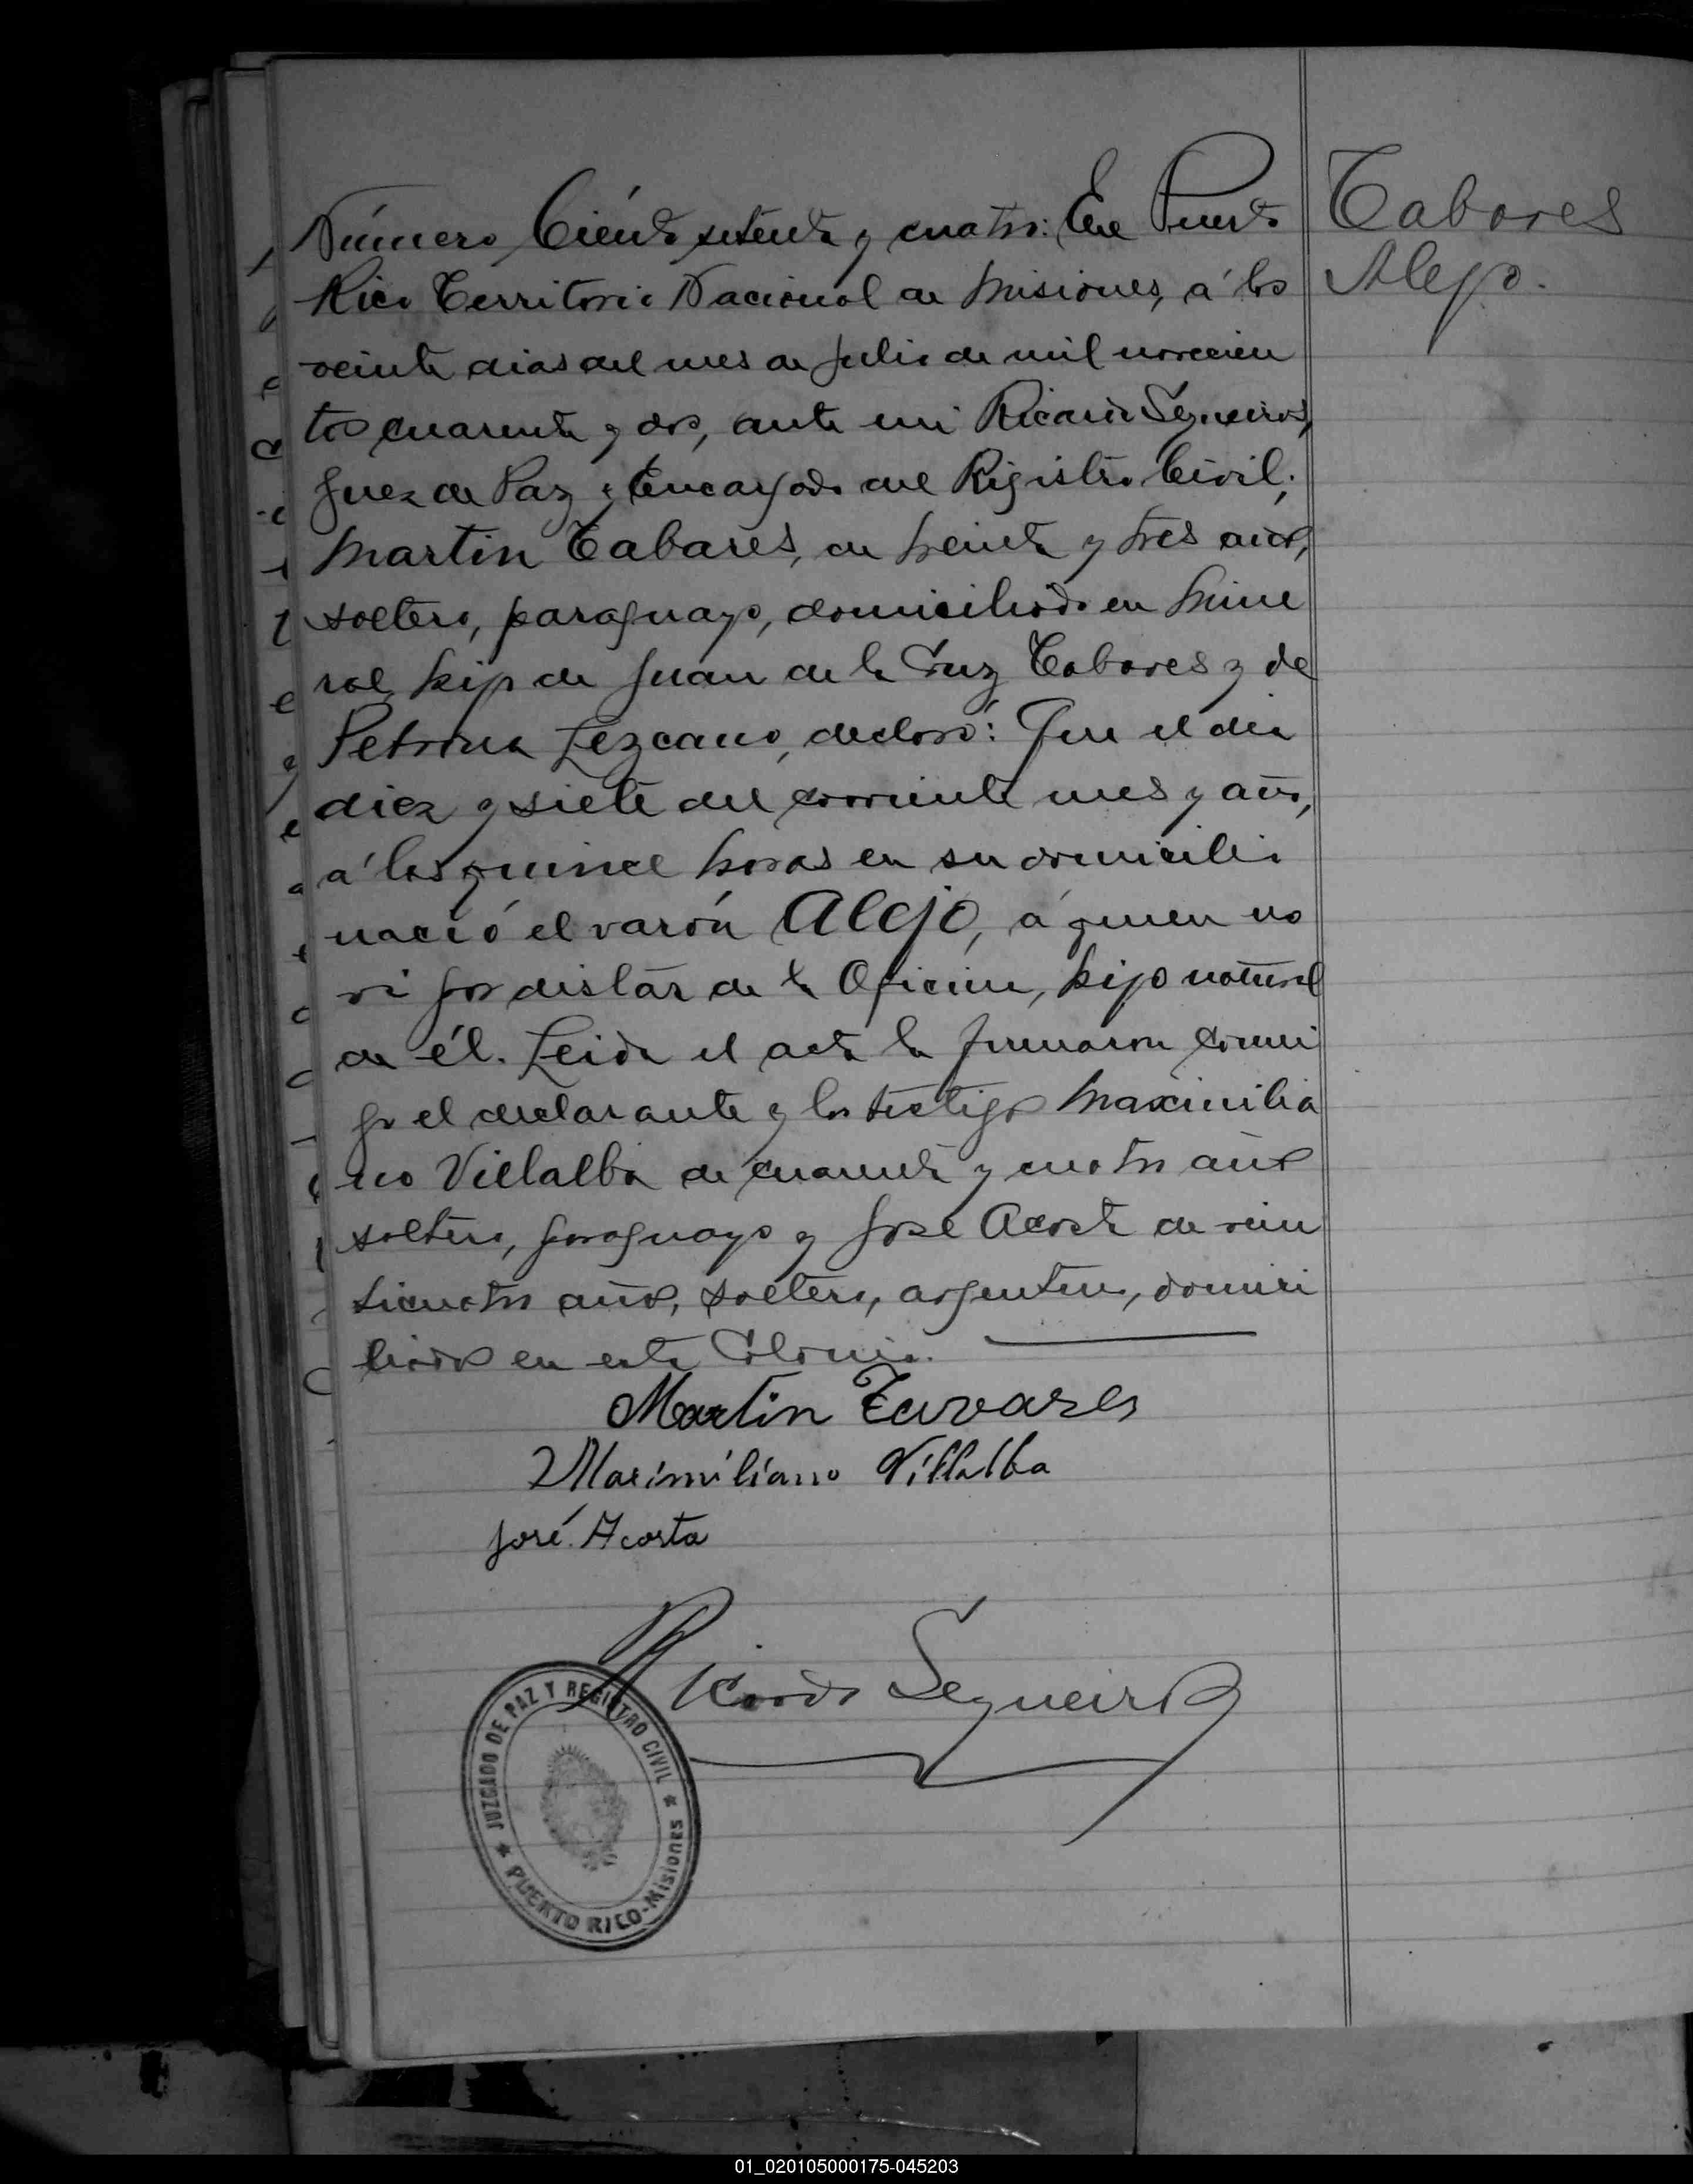 Número Ciento setenta y cuatro: En Puerto
Rico Territorio Nacional de Misiones, á los
veinte dias del mes de Julio de mil novecien
tos cuarenta y dos, ante mi Ricardo Segueiros,
Juez de Paz y Encargado del Registro Civil;
Martin Tabares, de treinta y tres años,
soltero, paraguayo, domiciliado en Mine
ral, hijo de Juan de la Cruz Tabares y de
Petrona Lezcano, declaró: Que el dia
diez y siete del corriente mes y año,
á las quince horas en su domicilio
nació el varón Alejo, á quien no
vi por distar de la Oficina, hijo natural
de él. Leida el acta la firmaron conmi
go el declarante y los testigos Maximilia
no Villalba de cuarenta y cuatro años
soltero, paraguayo y José Acosta de vein
ticuatro años, soltero, argentino, domici
liados en esta Colonia.
Tabores
Alejo.
Martin Tavares
Maximiliano Villalba
José Acosta
Ricardo Segueiros
JUZGADO DE PAZ Y REGISTRO CIVIL
PUERTO RICO-MISIONES
01_020105000175-045203